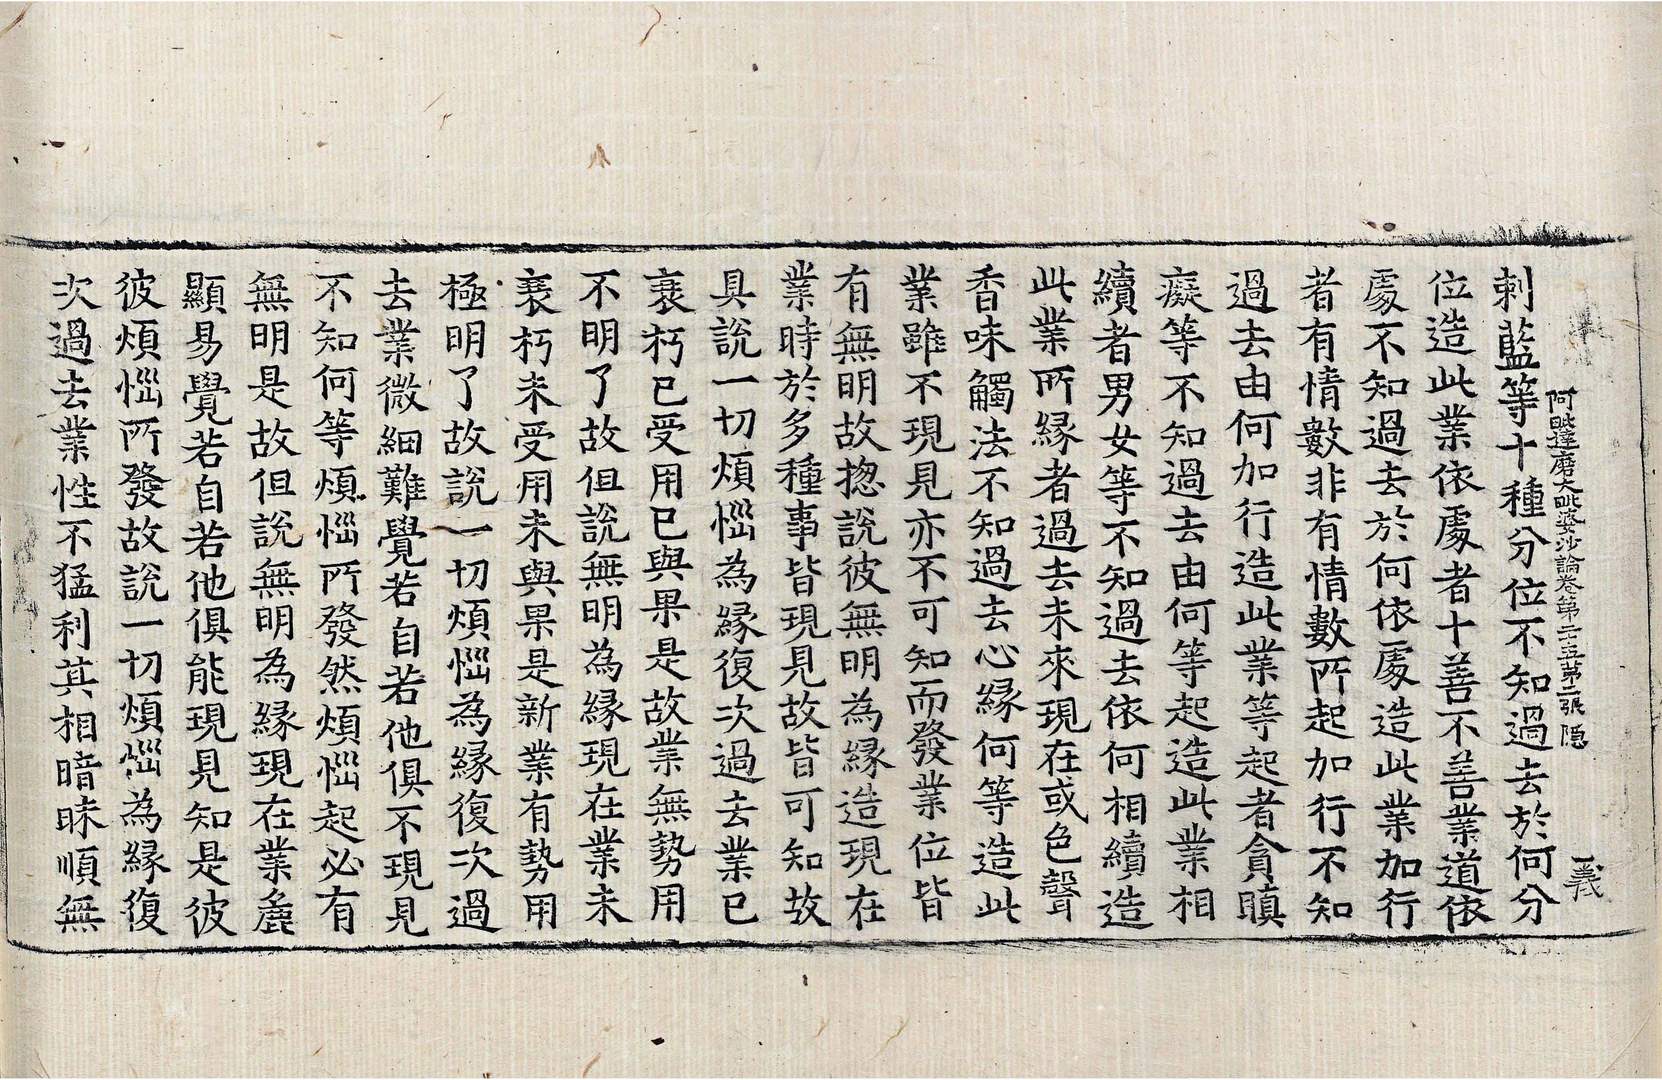 阿毗達磨大毗婆沙論卷第二十五第二張 隱
義
剌藍等十種分位不知過去於何分
位造此業依處者十善不善業道依
處不知過去於何依處造此業加行
者有情數非有情數所起加行不知
過去由何加行造此業等起者貪瞋
癡等不知過去由何等起造此業相
續者男女等不知過去依何相續造
此業所緣者過去未來現在或色聲
香味觸法不知過去心緣何等造此
業雖不現見亦不可知而發業位皆
有無明故揔說彼無明為緣造現在
業時於多種事皆現見故皆可知故
具說一切煩惱為緣復次過去業已
衰朽已受用已與果是故業無勢用
不明了故但說無明為緣現在業未
衰朽未受用未與果是新業有勢用
極明了故說一切煩惱為緣復次過
去業微細難覺若自若他俱不現見
不知何等煩惱所發然煩惱起必有
無明是故但說無明為緣現在業麁
顯易覺若自若他俱能現見知是彼
彼煩惱所發故說一切煩惱為緣復
次過去業性不猛利其相暗昧順無